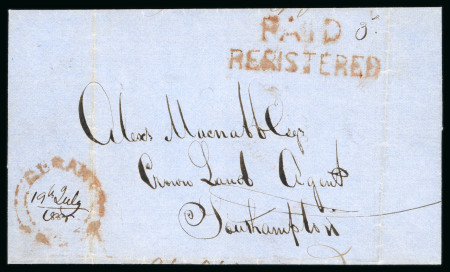 PAID
REGISTERED
Alexr Macnabb Esqr
Crown Land Agent
Southampton
19th July